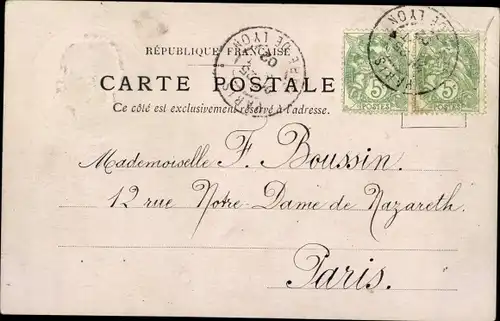 RÉPUBLIQUE FRANÇAISE
CARTE POSTALE
Ce côté est exclusivement réservé à l'adresse.
DE LYON
PARIS
DE LYON
PARIS
5c
POSTES
5c
POSTES
Mademoiselle F. Boussin.
12 rue Notre-Dame de Nazareth.
Paris.